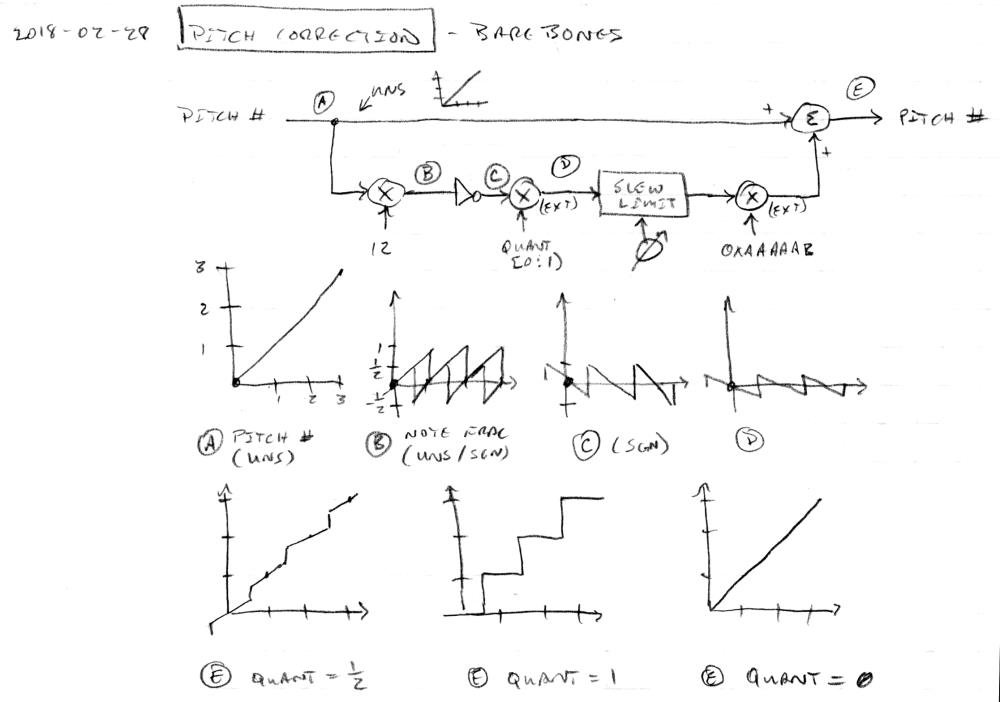 2018-02-28 PITCH CORRECTION - BARE BONES
A UNS E
PITCH # + Σ PITCH #
+
B C D
X X (EXT) SLEW LIMIT X (EXT)
12 QUANT [0:1) 0XAAAAAB
3
2
1
1 2 3
1
1/2
-1/2
A PITCH # (UNS)
B NOTE FRAC (UNS/SGN)
C (SGN)
D
E QUANT = 1/2
E QUANT = 1
E QUANT = 0